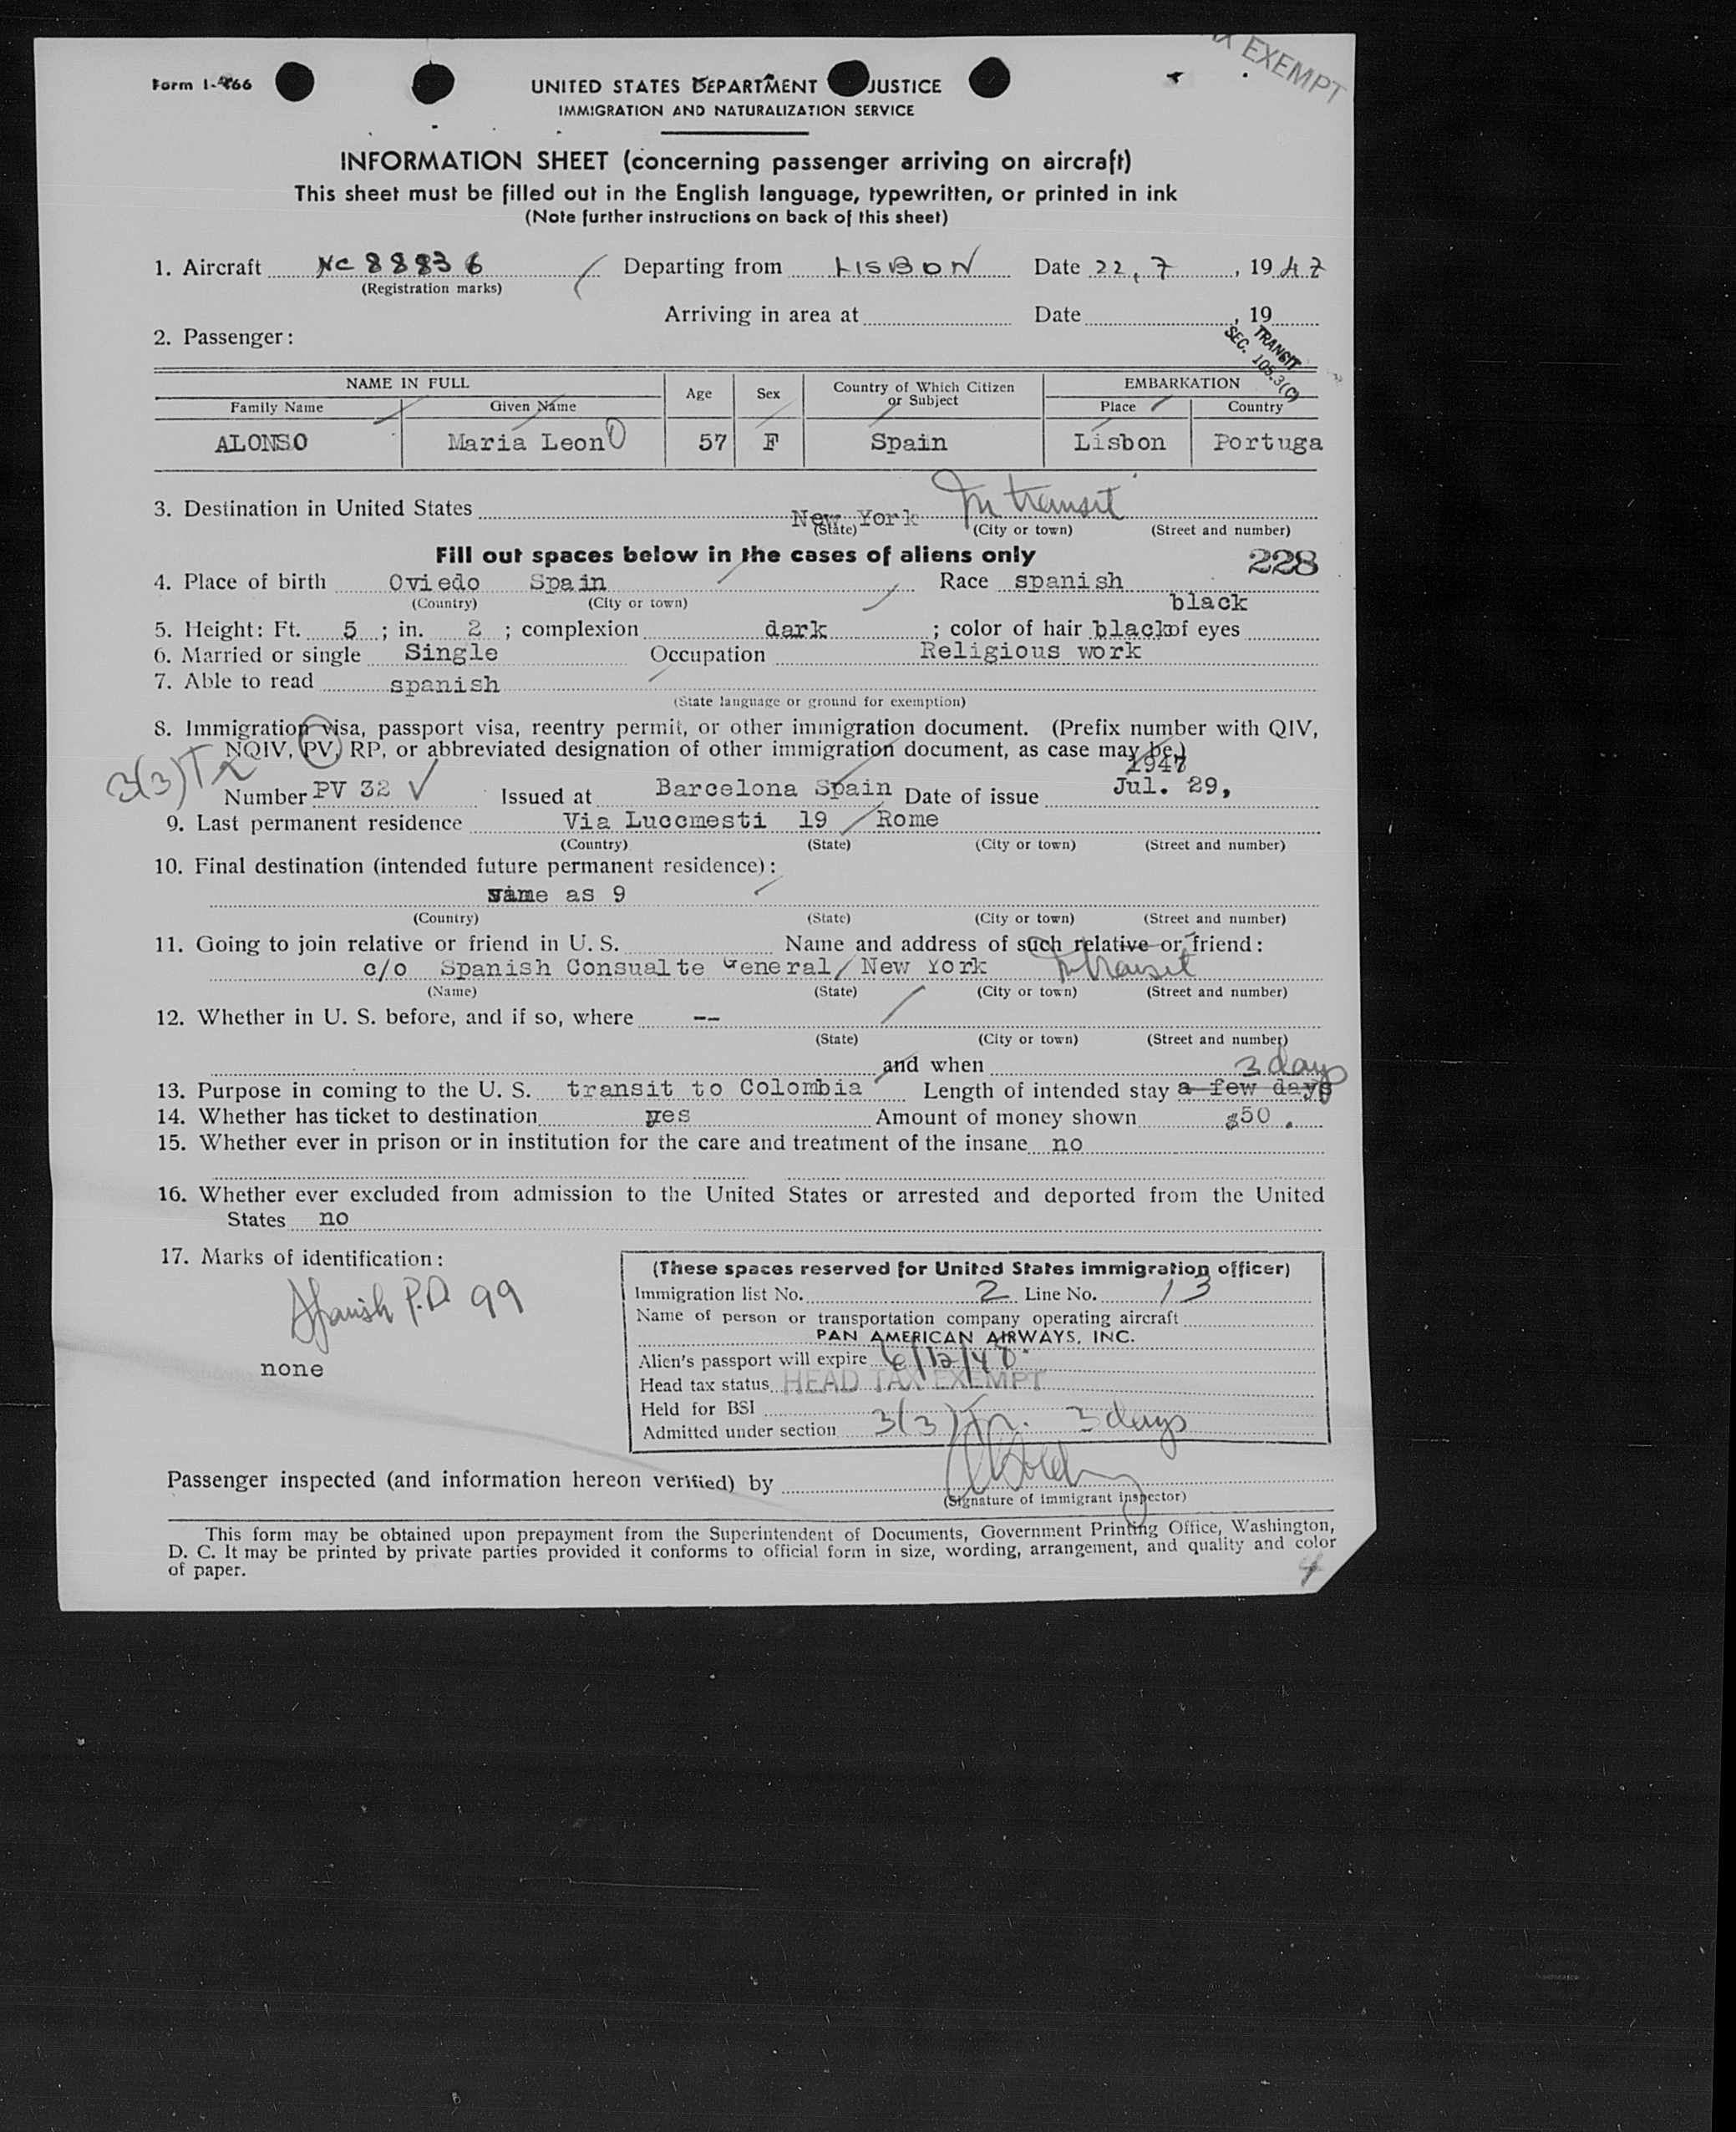 TAX EXEMPT
Form I-466
UNITED STATES DEPARTMENT JUSTICE
IMMIGRATION AND NATURALIZATION SERVICE
INFORMATION SHEET (concerning passenger arriving on aircraft)
This sheet must be filled out in the English language, typewritten, or printed in ink
(Note further instructions on back of this sheet)
1. Aircraft NC 88836 Departing from LISBON Date 22,7, 1947
(Registration marks)
Arriving in area at Date , 19
2. Passenger:
TRANSIT
SEC. 105.3(C)
NAME IN FULL Age Sex Country of Which Citizen or Subject EMBARKATION
Family Name Given Name Place Country
ALONSO Maria Leon O 57 F Spain Lisbon Portuga
3. Destination in United States New York In transit
(State) (City or town) (Street and number)
Fill out spaces below in the cases of aliens only 228
4. Place of birth Oviedo Spain Race spanish
(Country) (City or town) black
5. Height: Ft. 5 ; in. 2 ; complexion dark ; color of hair black of eyes
6. Married or single Single Occupation Religious work
7. Able to read spanish
(State language or ground for exemption)
8. Immigration visa, passport visa, reentry permit, or other immigration document. (Prefix number with QIV,
NQIV, PV, RP, or abbreviated designation of other immigration document, as case may be.)
3(3)Tr 1947
Number PV 32 Issued at Barcelona Spain Date of issue Jul. 29,
9. Last permanent residence Via Lucomesti 19 Rome
(Country) (State) (City or town) (Street and number)
10. Final destination (intended future permanent residence):
same as 9
(Country) (State) (City or town) (Street and number)
11. Going to join relative or friend in U. S. Name and address of such relative or friend:
c/o Spanish Consualte General/ New York In transit
(Name) (State) (City or town) (Street and number)
12. Whether in U. S. before, and if so, where --
(State) (City or town) (Street and number)
and when 3 days
13. Purpose in coming to the U. S. transit to Colombia Length of intended stay a few days
14. Whether has ticket to destination yes Amount of money shown $50.
15. Whether ever in prison or in institution for the care and treatment of the insane no
16. Whether ever excluded from admission to the United States or arrested and deported from the United
States no
17. Marks of identification:
Spanish P.D. 99
none
(These spaces reserved for United States immigration officer)
Immigration list No. 2 Line No. 13
Name of person or transportation company operating aircraft
PAN AMERICAN AIRWAYS, INC.
Alien's passport will expire 6/12/48
Head tax status HEAD TAX EXEMPT
Held for BSI
Admitted under section 3(3) Tr. 3 days
Passenger inspected (and information hereon verified) by
(Signature of immigrant inspector)
This form may be obtained upon prepayment from the Superintendent of Documents, Government Printing Office, Washington,
D. C. It may be printed by private parties provided it conforms to official form in size, wording, arrangement, and quality and color
of paper.